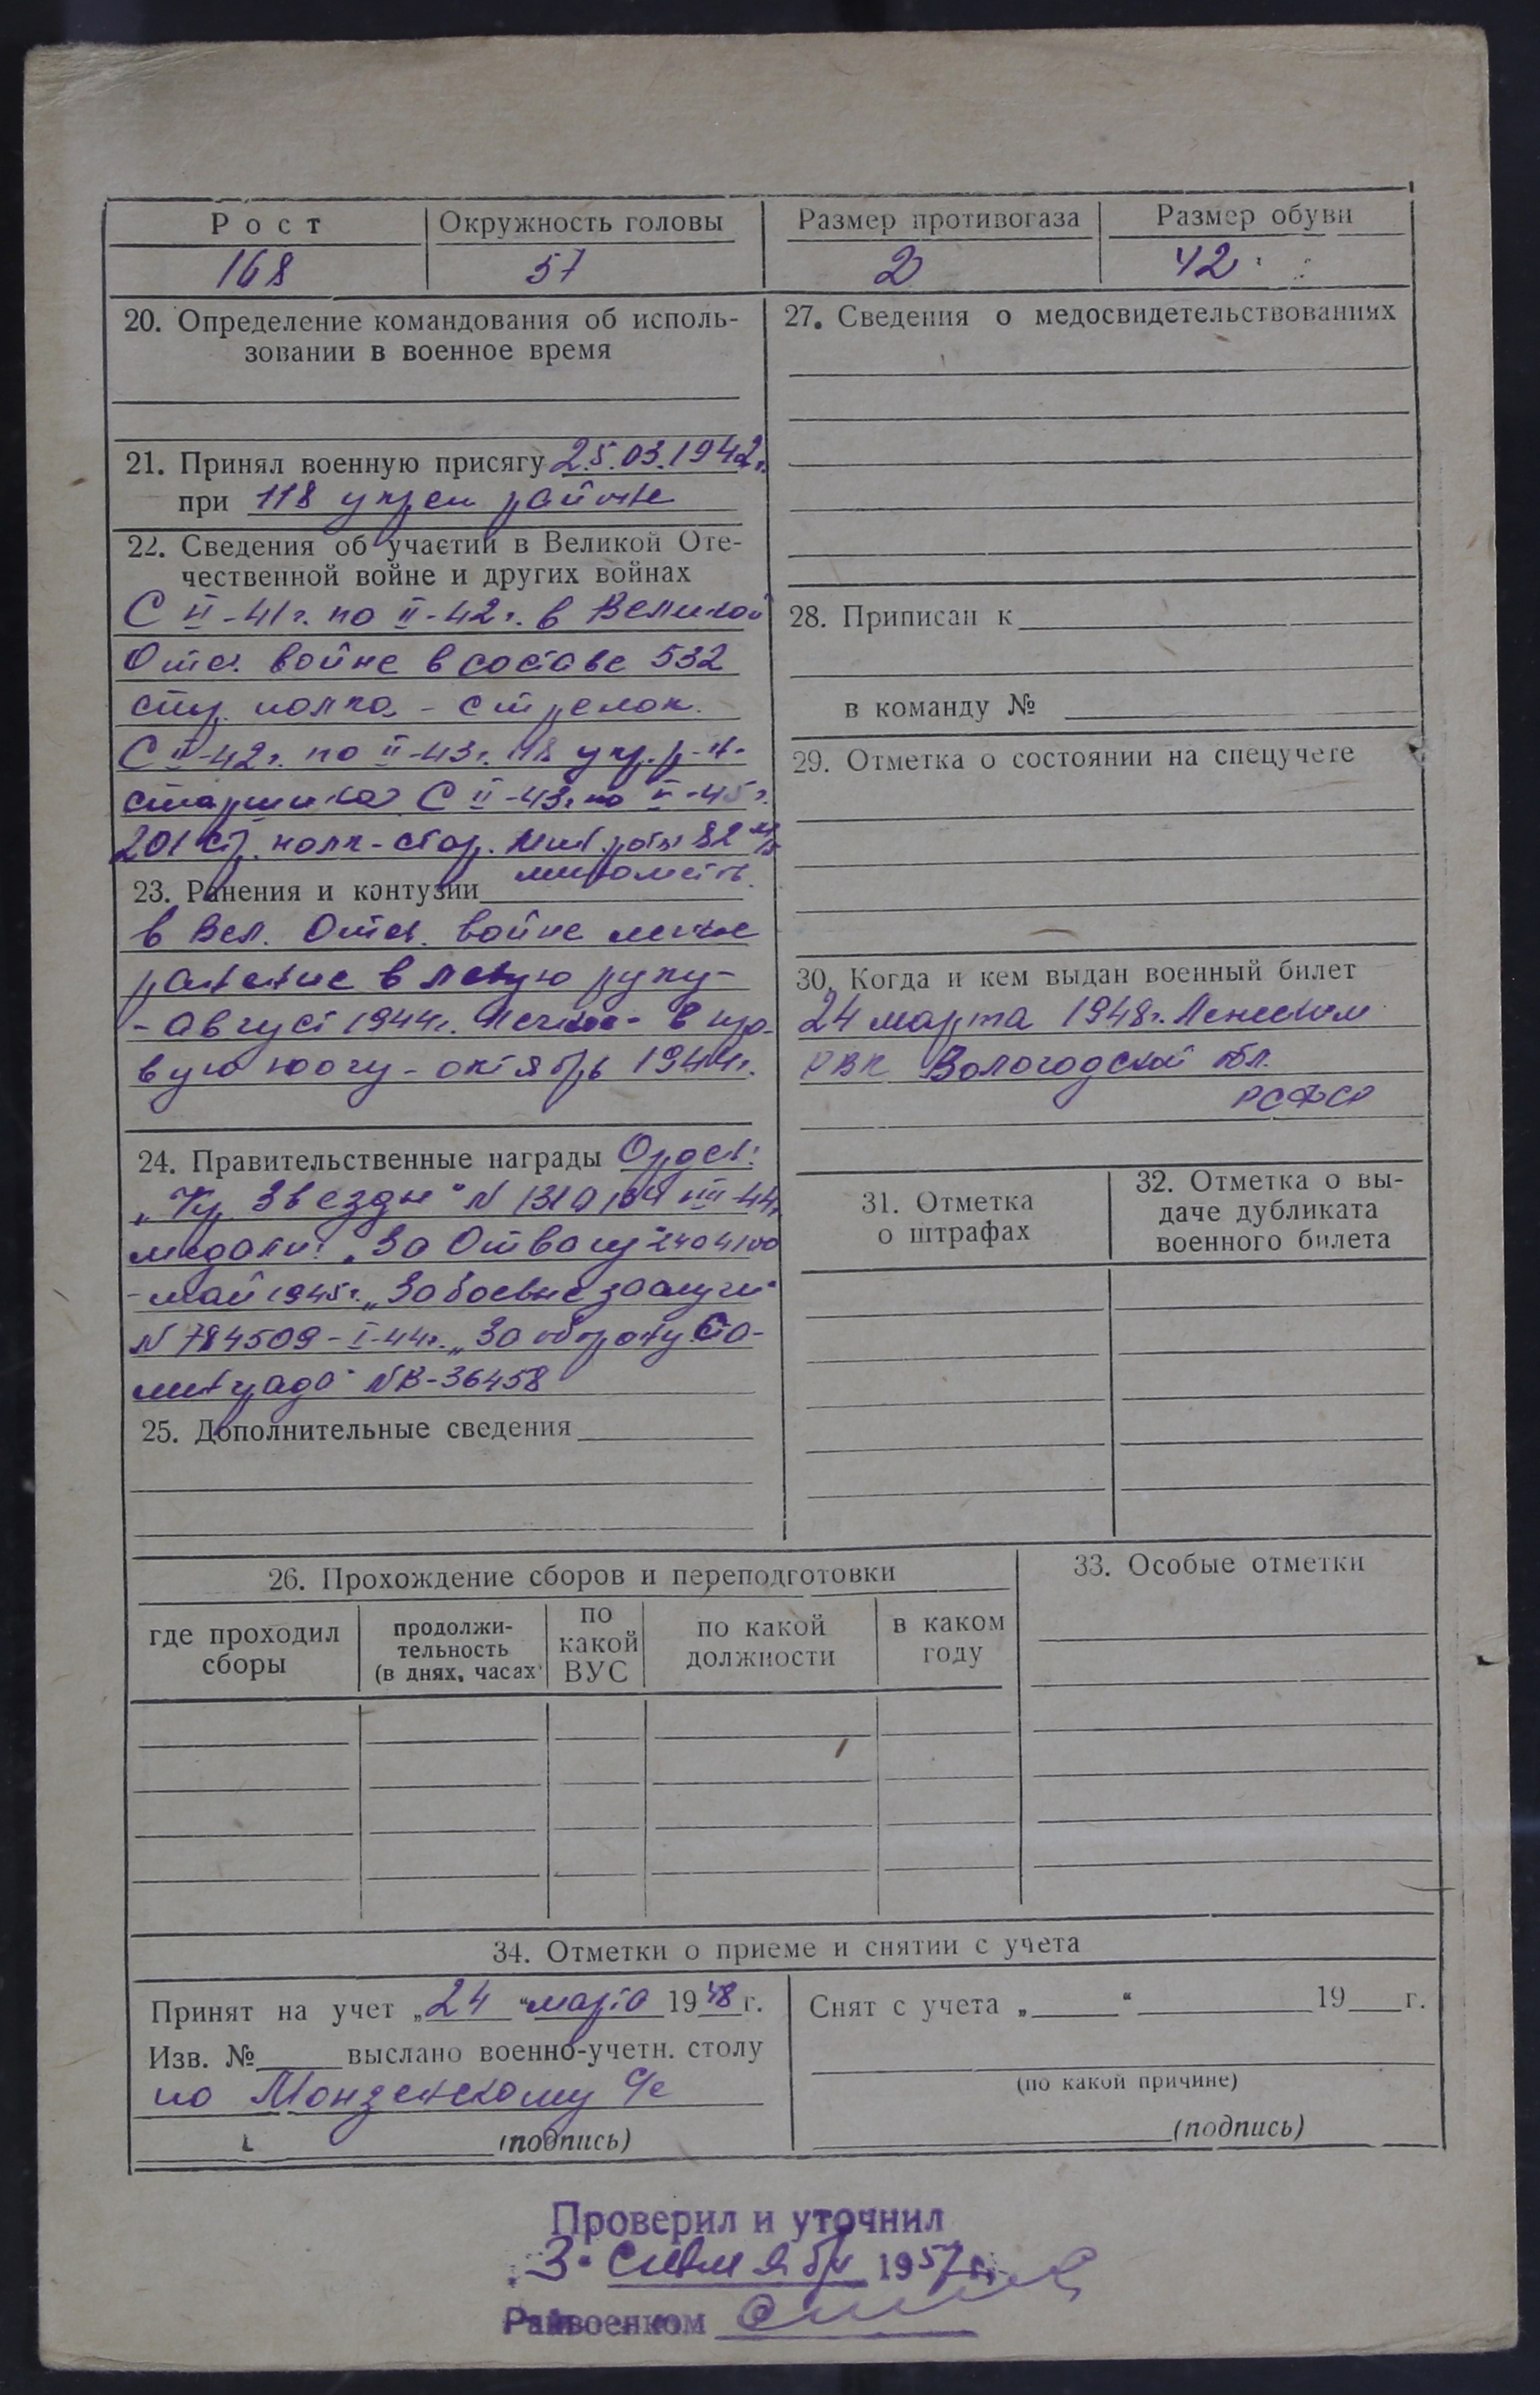 Рост Окружность головы Размер противогаза Размер обуви
168 57 2 42
20. Определение командования об исполь-
зовании в военное время
21. Принял военную присягу 25.03.1942г.
при 118 укреп районе
22. Сведения об участии в Великой Оте-
чественной войне и других войнах
С VI-41г. по II-42г. в Великой
Отеч. войне в составе 532
стр. полка - стрелок.
С II-42г. по II-43г. 118 укр. р-н-
старшина С II-43г. по V-45г.
201 стр. полк - стар. мин. роты 82 м/м
23. Ранения и контузии минометч.
в Вел. Отеч. войне легкое
ранение в левую руку-
- август 1944г. легкое - в пра-
вую ногу - октябрь 1944г.
24. Правительственные награды Орден:
„Кр. Звезды" N VIII-44г.
медали: „За Отвагу" 2404100
- май 1945г. „За боевые заслуги"
N 784509 - I-44г. „За оборону Ста-
линграда" NВ-36458
25. Дополнительные сведения
27. Сведения о медосвидетельствованиях
28. Приписан к
в команду №
29. Отметка о состоянии на спецучете
30. Когда и кем выдан военный билет
24 марта 1948г.
РВК Вологодской обл.
РСФСР
31. Отметка
о штрафах
32. Отметка о вы-
даче дубликата
военного билета
26. Прохождение сборов и переподготовки
где проходил
сборы
продолжи-
тельность
(в днях, часах)
по
какой
ВУС
по какой
должности
в каком
году
33. Особые отметки
34. Отметки о приеме и снятии с учета
Принят на учет „24" марта 1948 г.
Изв. № выслано военно-учетн. столу
по Монденскому с/с
(подпись)
Снят с учета „ " 19 г.
(по какой причине)
(подпись)
Проверил и уточнил
„3" сентября 1957 г.
Райвоенком